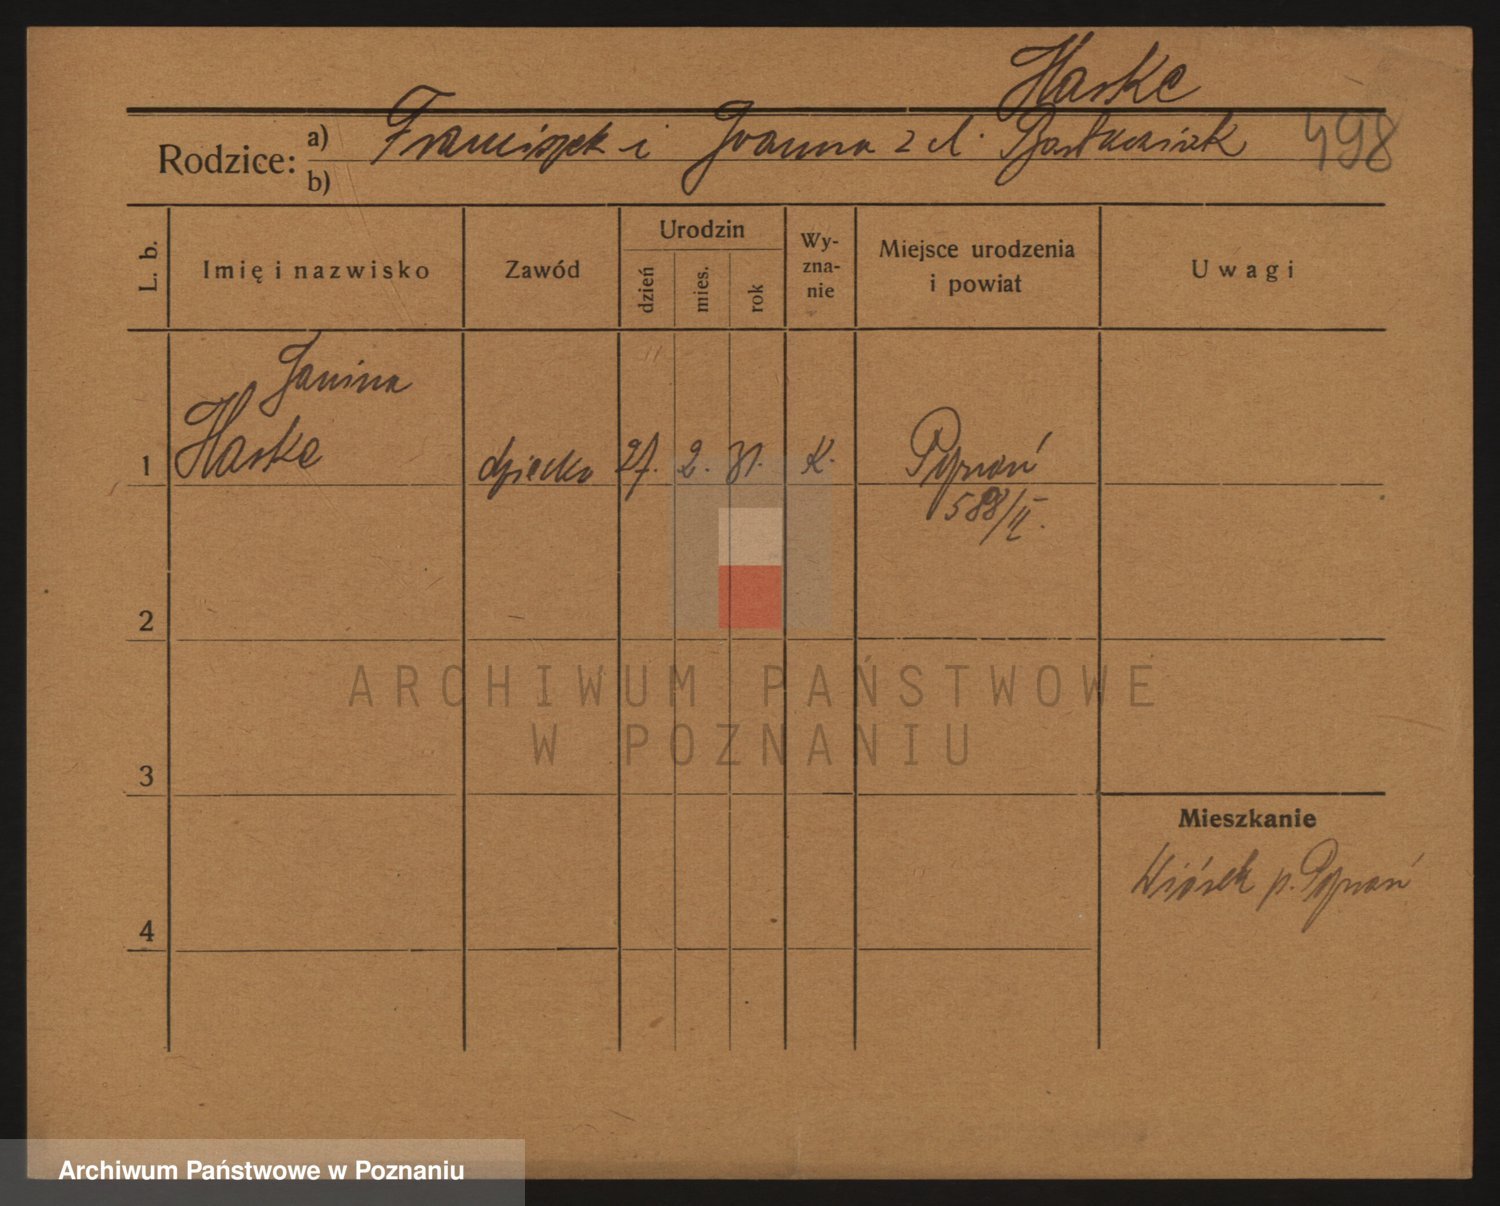 Haske
Rodzice: a) Franciszek i Joanna z d. Bartkowiak 498
b)
L. b. Imię i nazwisko Zawód Urodzin dzień mies. rok Wy-zna-nie Miejsce urodzenia i powiat Uwagi
Janina
1 Haske dziecko 27. 2. 31. K. Poznań
588/II.
2
ARCHIWUM PAŃSTWOWE
W POZNANIU
3
Mieszkanie
Wiórek p. Poznań
4
Archiwum Państwowe w Poznaniu